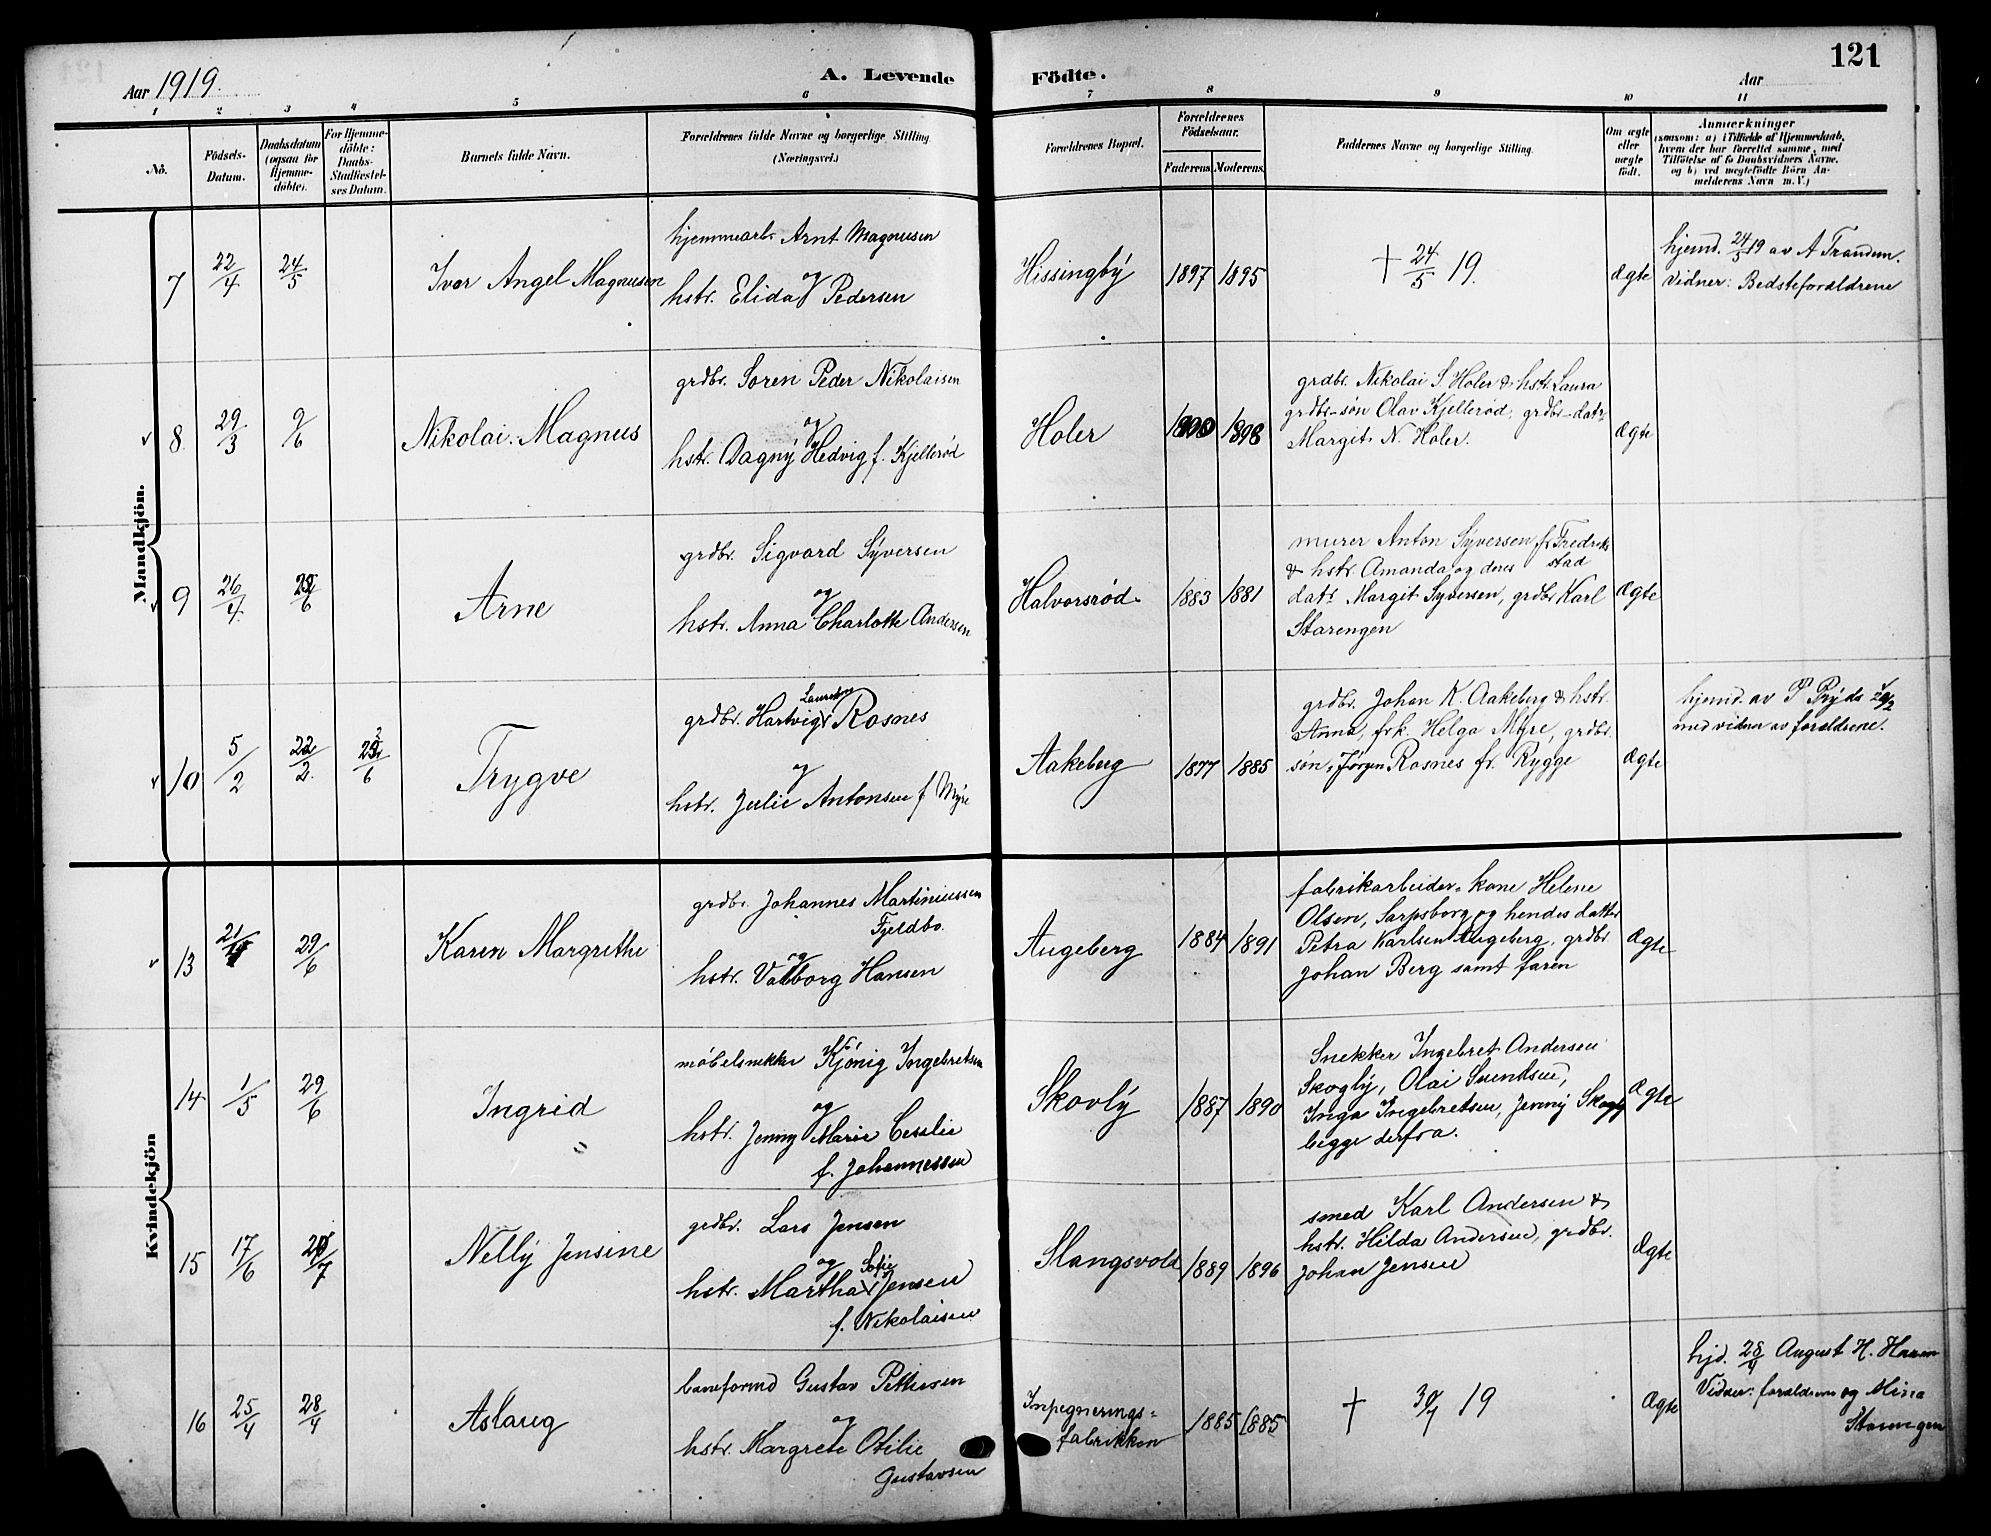 121
Aar 1919.
A. Levende Födte.
Aar
1 2 3 4 5 6 7 8 9 10 11
No.
Födsels-
Datum.
Daabsdatum
(ogsaa for
Hjemme-
döbte).
For Hjemme-
döbte:
Daabs-
Stadfæstel-
ses Datum.
Barnets fulde Navn.
Forældrenes fulde Navne og borgerlige Stilling
(Næringsvei.)
Forældrenes Bopæl.
Forældrenes
Födselsaar.
Faderens. Moderens.
Faddernes Navne og borgerlige Stilling.
Om ægte
eller
uegte
födt.
Anmerkninger
(saasom: a) i Tilfælde af Hjemmedaab,
hvem der har forrettet samme, med
Tilföielse af to Daabsvidners Navne.
og b) ved uegtefödte Börn An-
melderens Navn m. V.)
Mandkjön.
7
22/4
24/5
Ivar Angel Magnusen
hjemmearb. Arnt Magnusen
og
hstr. Elida Pedersen
Hissingbý
1897
1895
+ 24/5 19.
Ægte
hjemd. 24/5 19 av A Trandem.
Vidner: Bedsteforældrene
8
29/3
9/6
Nikolai Magnus
grdbr. Soren Peder Nikolaisen
og
hstr. Dagný Hedvig f. Kjellerød
Holer
1898
grdbr. Nikolai S Holer & hstr. Laura
grdbr-søn Olav Kjellerød, grdbr-datr
Margit N. Holer.
Ægte
9
26/4
Arne
grdbr. Sigvard Sýversen
og
hstr. Anna Charlotte Andersen
Halvorsrød
1883
1881
murer Anton Sýversen fr Fredrik
stad
& hstr. Amanda og deres
datr Margit Syversen, grdbr Karl
Starengen
Ægte
10
5/2
22/2
Trygve
Lauritz
grdbr. Hartvig Rosnes
og
hstr. Julie Antonsen f Mýre
Aakeberg
1877
1885
grdbr. Johan K. Aakeberg & hstr.
Anna, frk. Helga Myre, grdbr.
søn, Jörgen Rosnes fr. Rygge
Ægte
hjemd. av P Prýds
med vidner av forældrene.
Kvindekjön
13
29/6
Karen Margrethe
grdbr. Johannes Martiniussen
Fjeldbo.
og
hstr. Valborg Hansen
Augeberg
1884
1891
fabrikarbeider-kone Helene
Olsen, Sarpsborg og hendes datter
Petra Karlsen Augeberg, grdbr
Johan Berg samt faren
Ægte
14
1/5
29/6
Ingrid
möbelsnekker Kjönig Ingebretsen
og
hstr. Jenny Marie Cesslie
f. Johannessen
Skovlý
1887
1890
Snekker Ingebret Andersen
Skogbý, Olai Svendsen,
Inga Ingebretsen, Jenný Skogbý
begge derfra.
Ægte
15
17/6
Nellý Jensine
grdbr. Lars Jensen
og Sofie
hstr. Martha Jensen
f. Nikolaisen
Slangsvold
1889
1896
smed Karl Andersen &
hstr. Hilda Andersen, grdbr.
Johan Jensen
Ægte
16
25/4
28/4
Aslaug
baneformd Gustav Pettersen
og
hstr. Margrete Otilie
Gustavsen
Impegnerings-
fabrikken
1885
1885
+ 30/4 19
Ægte
hjd. 28/4 August H. Haum
Vidner: forældrene og Mina
Starengen